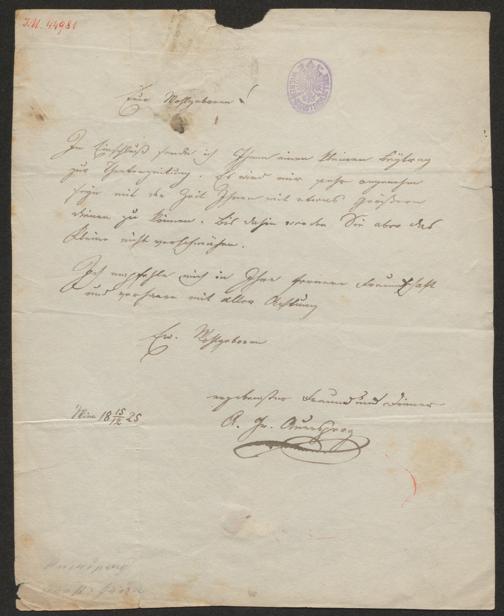 I.N. 44981
Euer Wohlgeboren!
Im Einschluß sende ich Ihnen einen kleinen Beytrag
zur Theaterzeitung. Es wird mir sehr angenehm
seyn mit der Zeit Ihnen mit etwas Größeren
dienen zu können. Bis dahin werden Sie aber das
Kleine nicht verschmähen.
Ich empfehle mich in Ihre fernere Freundschaft
und verharre mit aller Achtung
Ew. Wohlgeboren
ergebenster Freund und Diener
Wien 18 15/12 25
A. Gr. Auersperg